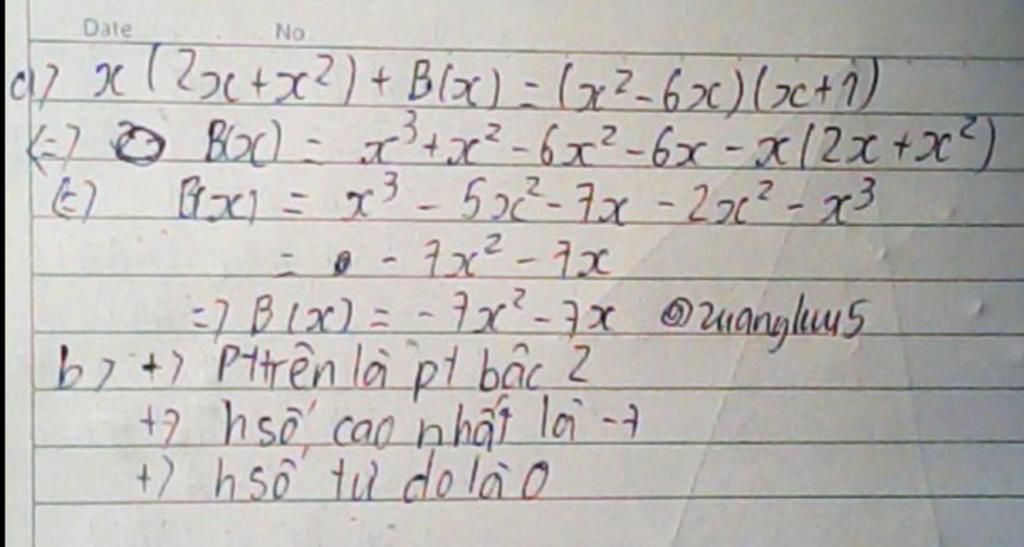 Date No
a) x(2x+x²) + B(x) = (x²-6x)(x+1)
(=) B(x) = x³+x²-6x²-6x-x(2x+x²)
(=) B(x) = x³ - 5x²-7x - 2x² - x³
= - 7x² - 7x
=) B(x) = -7x² - 7x
b) +) Pt trên là pt bậc 2
+) h số cao nhất là -7
+) h số tự do là 0